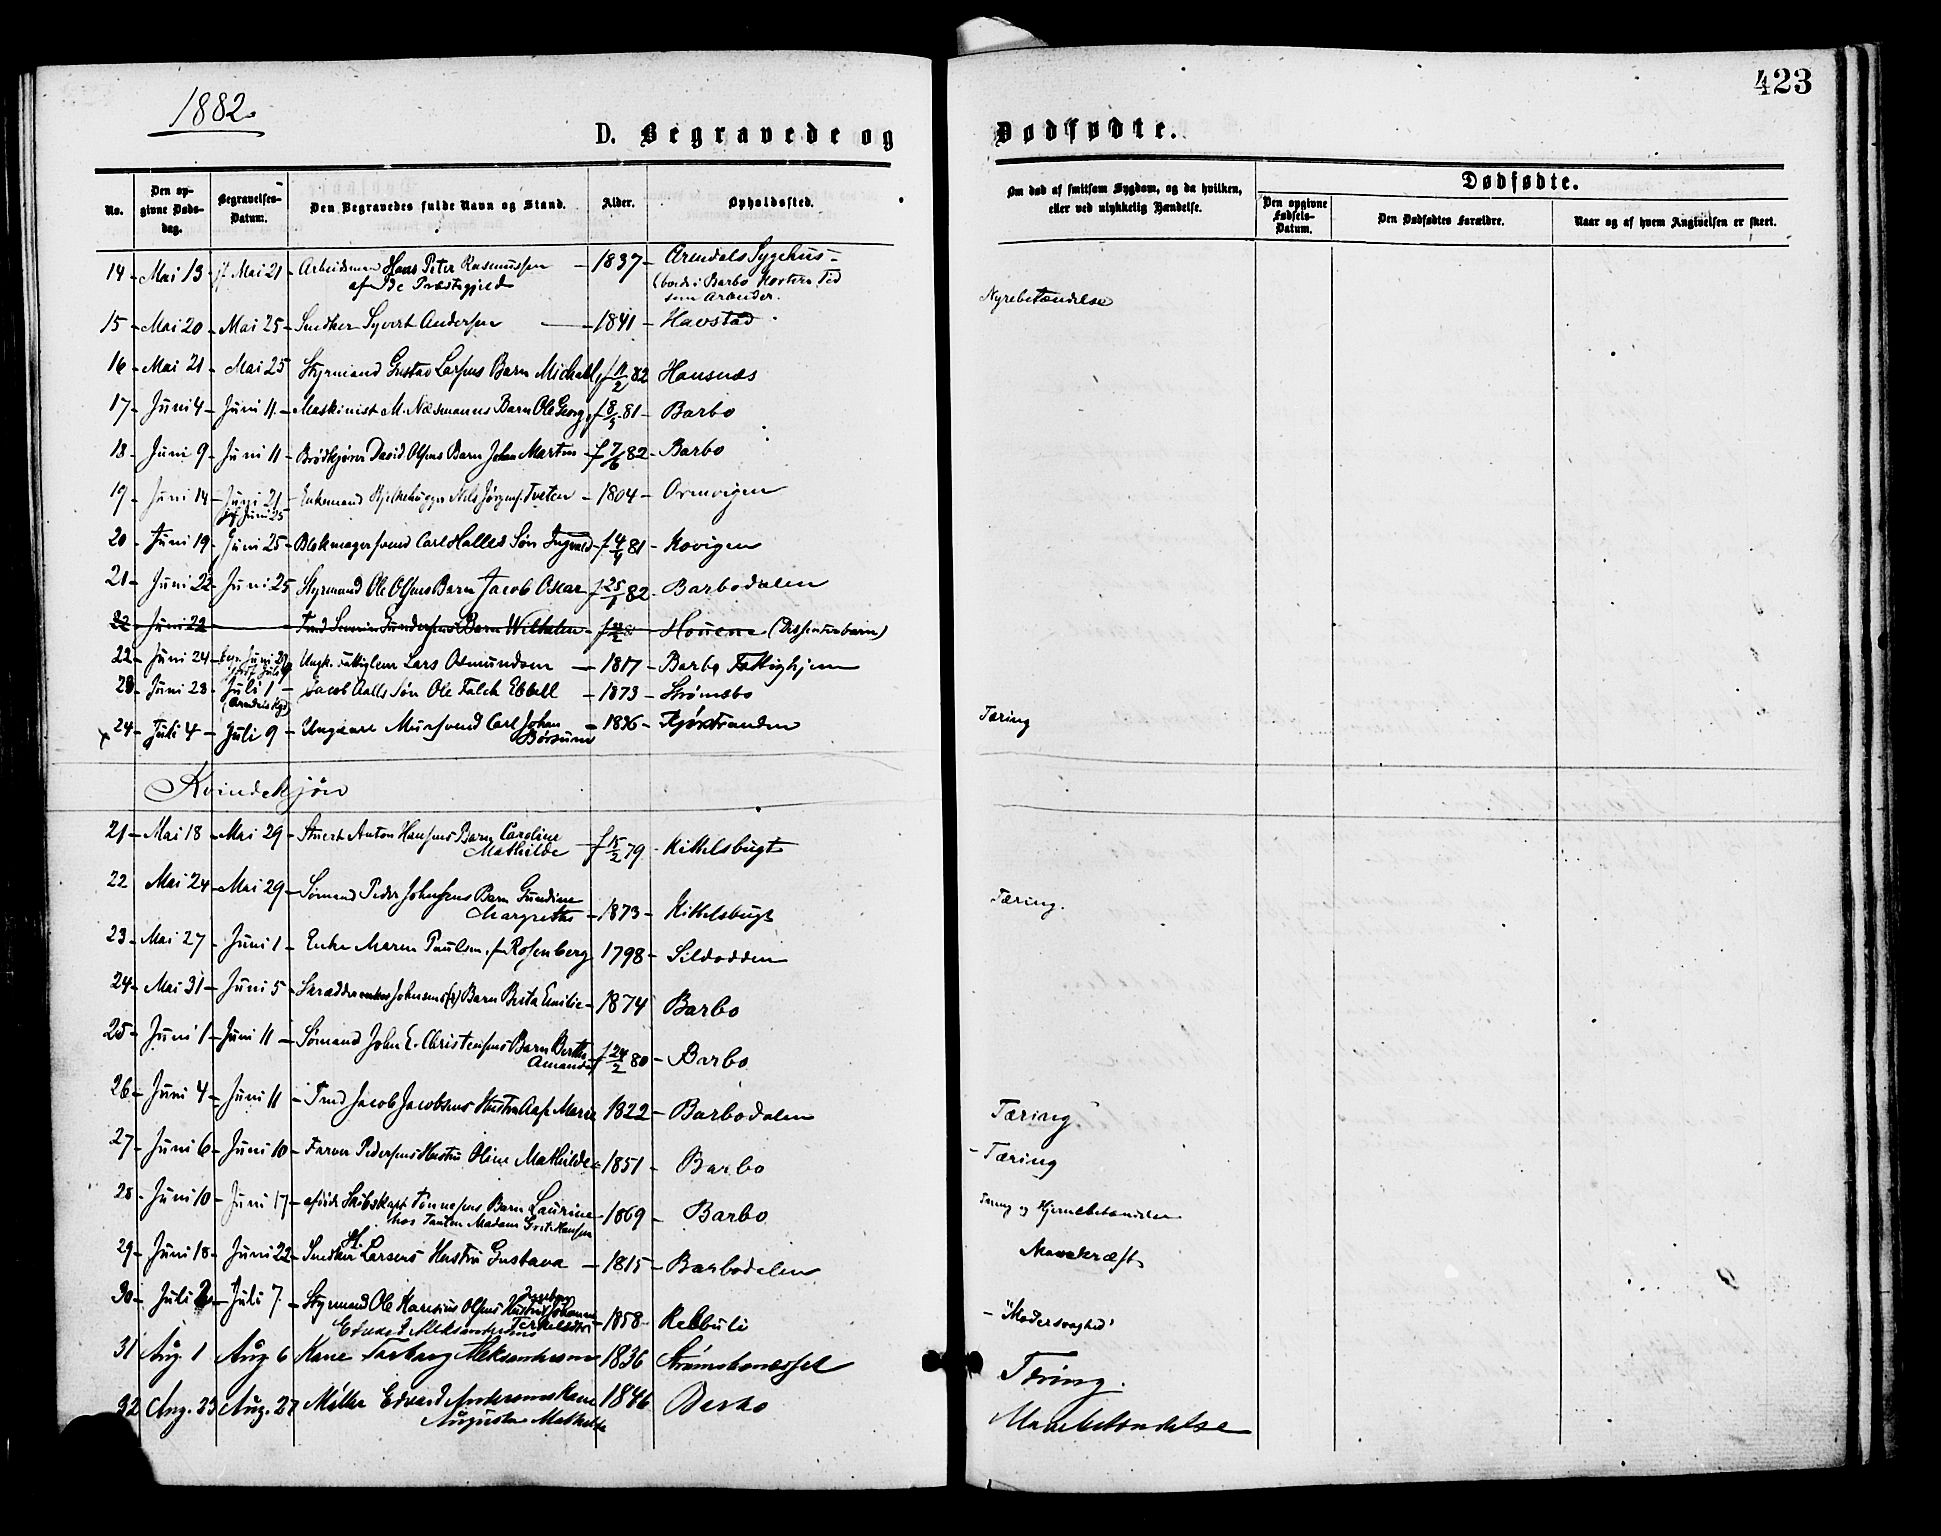 1882.
423
D. Begravede og
Dødfødte.
No.
Den op-
givne Døds-
dag.
Begravelses-
Datum.
Den Begravedes fulde Navn og Stand.
Alder.
Opholdssted.
Om død af smitsom Sygdom, og da hvilken,
eller ved ulykkelig Hændelse.
Dødfødte.
Den opgivne
Fødsels-
Datum.
Den Dødfødtes Forældre.
Naar og af hvem Angivelsen er skeet.
14 - Mai 13 - Mai 21 - Arbeidsmand Hans Peter Rasmussen - 1837 - Arendals Sygehus -
af Præstegjeld (boede i Barbo kortere Tid
som Arbeider. Nyrebetændelse
15 - Mai 20 - Mai 25 - Snedker Syvert Andersen - 1841 - Havstad
16 - Mai 21 - Mai 25 Styrmand Gustav Larsens Barn Michael, f 11/2 82 Hansnæs
17 - Juni 4 - Juni 11 - Maskinist M. Næsmanns Barn Ole Georg, f 8/5 81 - Barbo
18 - Juni 9 - Juni 11 - Brødkjører David Olsens Barn Johan Martin - f 7/6 82 - Barbo
19 - Juni 14 - Juni 21 - Enkemand Nils Jørgens. Tveten - 1804 - Ormvigen
Juni 25
20 - Juni 19 - Juni 25 - Blokmagersvend Carl Halles Søn Ingvald - f 4/4 81 - Kovigen
21 - Juni 22 - Juni 25 - Styrmand Ole Olsens Barn Jacob Oskar f 25/1 82 - Barbodalen
22 - Juni 22 - Tmd Gundersens Barn Wilhelm - f Houene (Dissenterbarn)
22 - Juni 24 - Juni 27 Ungk. Fattiglem Lars Osmundsen - 1817 - Barbo Fattighjem
23 - Juni 28 - Juli 1 - Jacob Aalls Søn Ole Falck Ebbell - 1873 - Strømsbo
(Arendals Kgd)
24 - Juli 4 - Juli 9 - Ungkarl Mursvend Carl Johan - 1836 - Kjøstranden Tæring
Børsum
Kvindekjøn
21 - Mai 18 - Mai 29 - Stuert Anton Hansens Barn Caroline
Mathilde - f 15/2 79 - Kittelsbugt
22 Mai 24 - Mai 29 - Sømand Peder Johnsens Barn Gundine
Margrethe - 1873 - Kittelsbugt Tæring.
23 - Mai 27 - Juni 1 - Enke Maren Paulsen f. Rosenberg 1798 - Sildodden
24 - Mai 31 - Juni 5 - Skrædder Johnsens Barn Berta Emilie - 1874 Barbo
25 - Juni 1 - Juni 11 - Sømand John E. Christensens Barn Berthe
Amanda f 24/2 80 - Barbo
26 - Juni 4 - Juni 11 - Tmd Jacob Jacobsens Hustru Aase Marie 1822 - Barbodalen Tæring
27 - Juni 6 - Juni 10 - Farver Pedersens Hustru Oline Mathilde - 1851 - Barbo - Tæring
28 - Juni 10 - Juni 17 - afdøde Skibskapt Tønnesens Barn Laurine - 1869 - Barbo Tæring og Hjernebetændelse
hos Tanten Madam Hansen
29 - Juni 18 - Juni 22 - Snedker H. Larsens Hustru Gustava - 1815 - Barbodalen Mavekræft
30 - Juli 2 - Juli 7 - Styrmand Ole Olsens Hustru Ingeborg Johanne
Terkelsdtr - 1858 - Rebbuli - "Modersvaghed"
Edvard Aleksandersens
31 Aug. 1 Aug 6 Kone Torborg Aleksandersen 1836 Strømsbonæsset Tæring.
32 Aug. 23 Aug. 27 Møller Edvard Andersens Kone 1846 Barbo
Augusta Mathilde